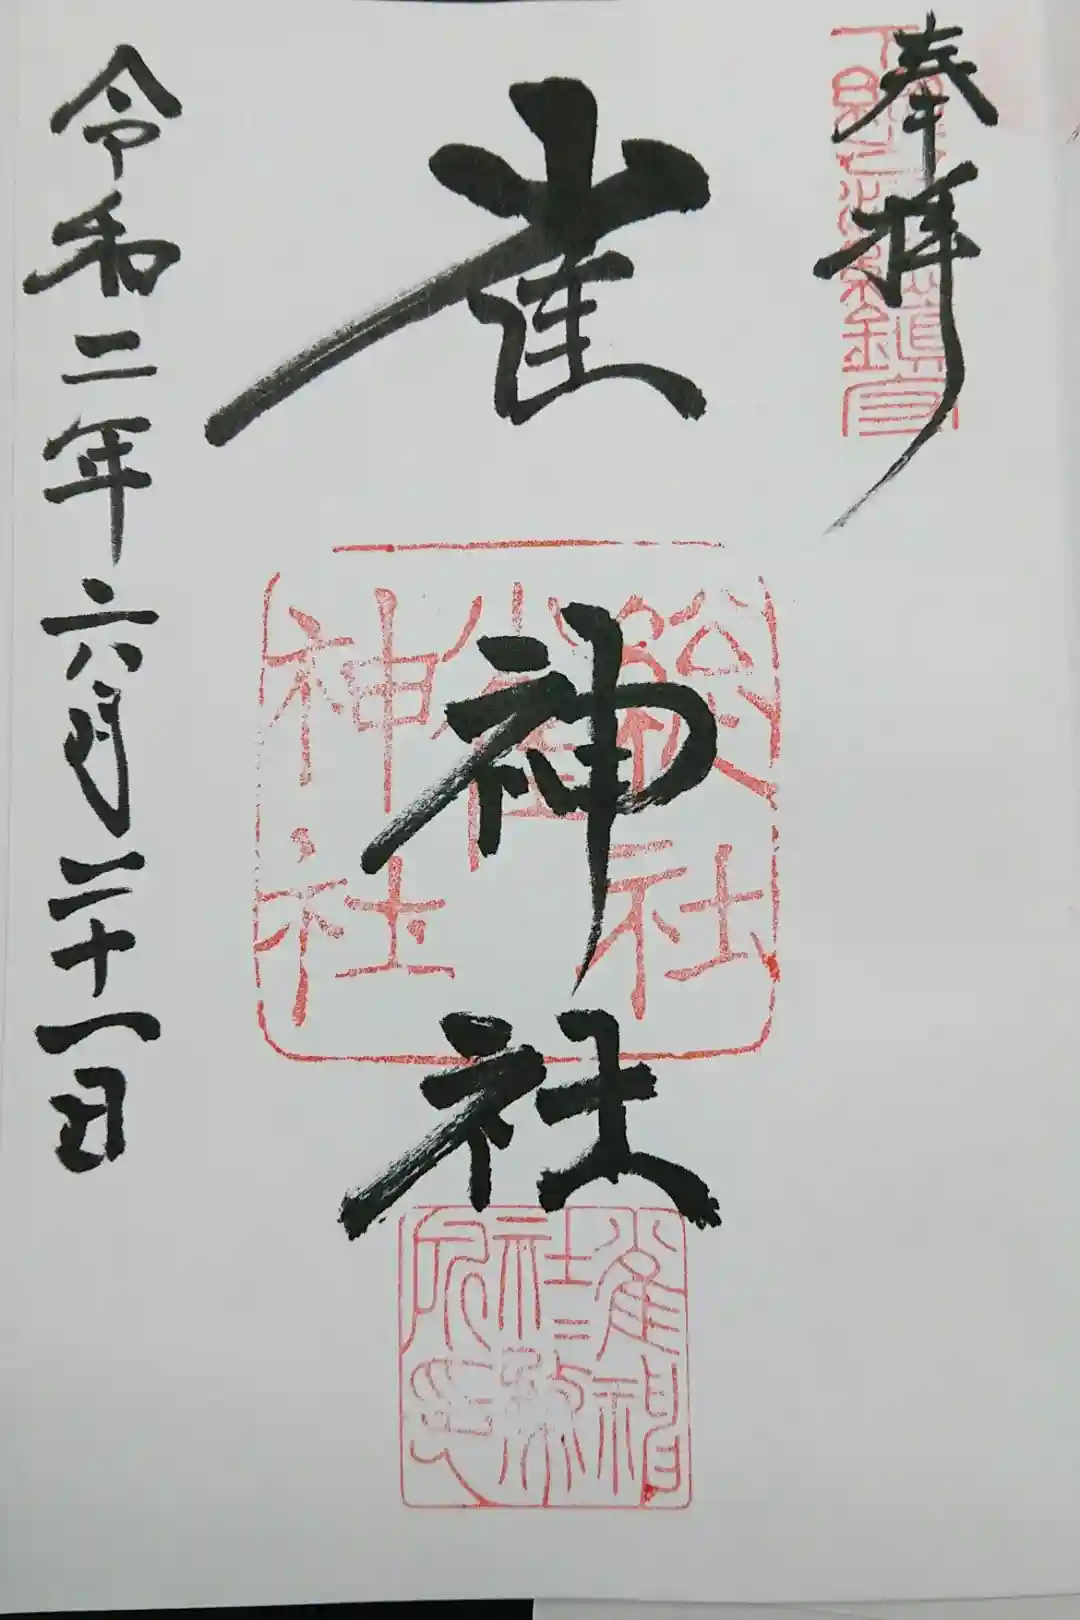 奉拝
雀神社
総社
雀
神社
令和二年六月二十一日